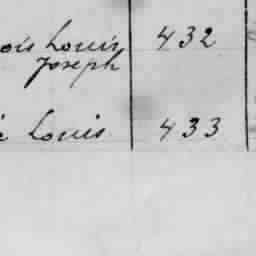 ois Louis 432
Joseph
é Louis 433